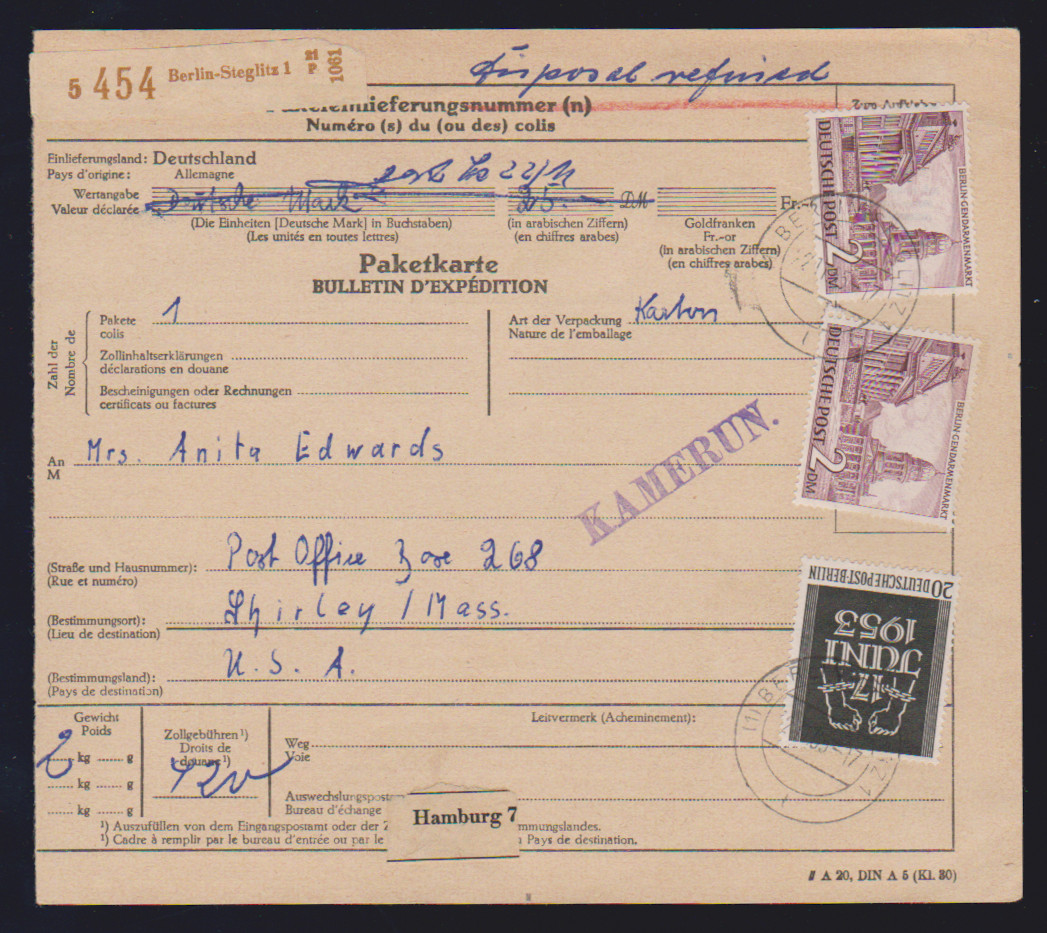 5 454 Berlin-Steglitz 1 21 P 1061
refused
lieferungsnummer (n)
Numéro (s) du (ou des) colis
Einlieferungsland: Deutschland
Pays d'origine: Allemagne
Wertangabe Deutsche Mark 25.- DM Fr.-
Valeur déclarée
(Die Einheiten [Deutsche Mark] in Buchstaben)
(Les unités en toutes lettres)
(in arabischen Ziffern)
(en chiffres arabes)
Goldfranken
Fr.-or
(in arabischen Ziffern)
(en chiffres arabes)
Paketkarte
BULLETIN D'EXPÉDITION
Zahl der
Nombre de
Pakete 1
colis
Zollinhaltserklärungen
déclarations en douane
Bescheinigungen oder Rechnungen
certificats ou factures
Art der Verpackung Karton
Nature de l'emballage
An Mrs. Anita Edwards
M
KAMERUN.
(Straße und Hausnummer): Post Office Boxe 268
(Rue et numéro)
(Bestimmungsort): Shirley / Mass.
(Lieu de destination)
(Bestimmungsland): U. S. A.
(Pays de destination)
Gewicht
Poids
2 kg g
kg g
kg g
Zollgebühren ¹)
Droits de
douane ¹)
420
Leitvermerk (Acheminement):
Weg
Voie
Auswechslungspost
Bureau d'échange
Hamburg 7
¹) Auszufüllen von dem Eingangspostamt oder der Z mmungslandes.
¹) Cadre à remplir par le bureau d'entrée ou par le Pays de destination.
A 20, DIN A 5 (Kl. 30)
DEUTSCHE POST
2 DM
BERLIN-GENDARMENMARKT
DEUTSCHE POST
2 DM
BERLIN-GENDARMENMARKT
20 DEUTSCHE POST-BERLIN
17.
JUNI
1953